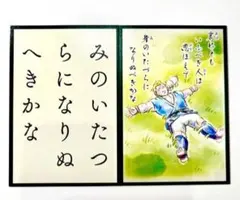 あはれとも
いふべき人は
思ほえで
身のいたづらに
なりぬべきかな
みのいたつ
らになりぬ
へきかな